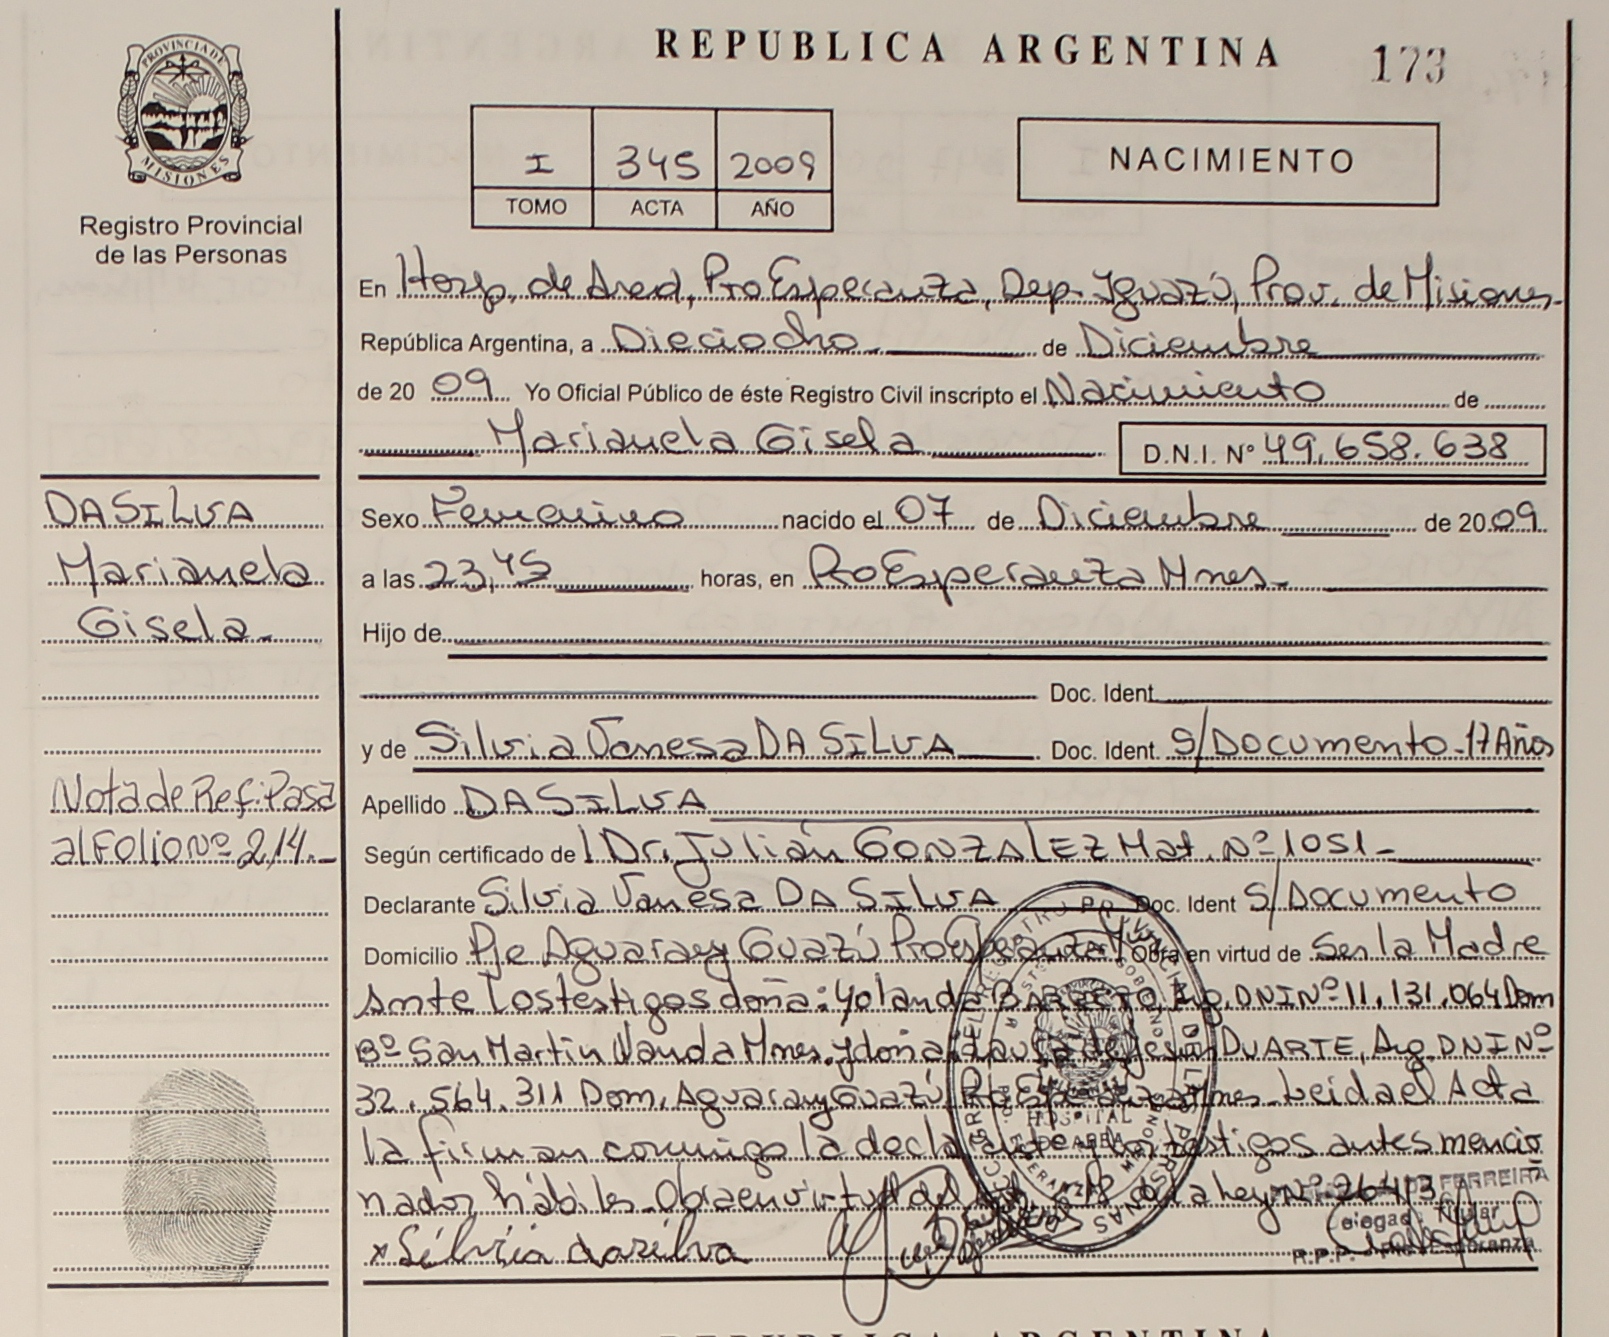 PROVINCIA DE
MISIONES
Registro Provincial
de las Personas
REPUBLICA ARGENTINA
173
I 345 2009
TOMO ACTA AÑO
NACIMIENTO
En Hosp. de Area, Pto Esperanza, Dep. Iguazú, Prov. de Misiones-
República Argentina, a Dieciocho de Diciembre
de 20 09 Yo Oficial Público de éste Registro Civil inscripto el Nacimiento de
Marianela Gisela D.N.I. Nº 49.658.638
Sexo Femenino nacido el 07 de Diciembre de 20 09
a las 23,45 horas, en Pto Esperanza Mnes-
Hijo de
Doc. Ident.
y de Silvia Vanesa DA SILVA Doc. Ident. S/Documento-17 Años
Apellido DA SILVA
Según certificado de l Dr. Julián GONZALEZ Mat. Nº 1051-
Declarante Silvia Vanesa DA SILVA Doc. Ident S/Documento
Domicilio Pje Aguaray Guazú Pto Esperanza Obra en virtud de Ser la Madre
Ante Los testigos doña: Yolanda BARRETO, Arg. DNI Nº 11.131.064 Dom
Bº San Martin Wanda Mnes. y doña: Laura de Jesus DUARTE, Arg. DNI Nº
32.564.311 Dom. Aguaray Guazú, Mnes- Leida el Acta
la firman conmigo la declarante y los testigos antes mencio
nados hábiles. Obra en virtud del de la Ley Nº 26413
x Silvia da silva
DA SILVA
Marianela
Gisela-
Nota de Ref: Pasa
al Folio Nº 214.-
HOSPITAL
DE AREA
FERREIRA
Delegad Titular
R.P.P. Esperanza
REPUBLICA ARGENTINA